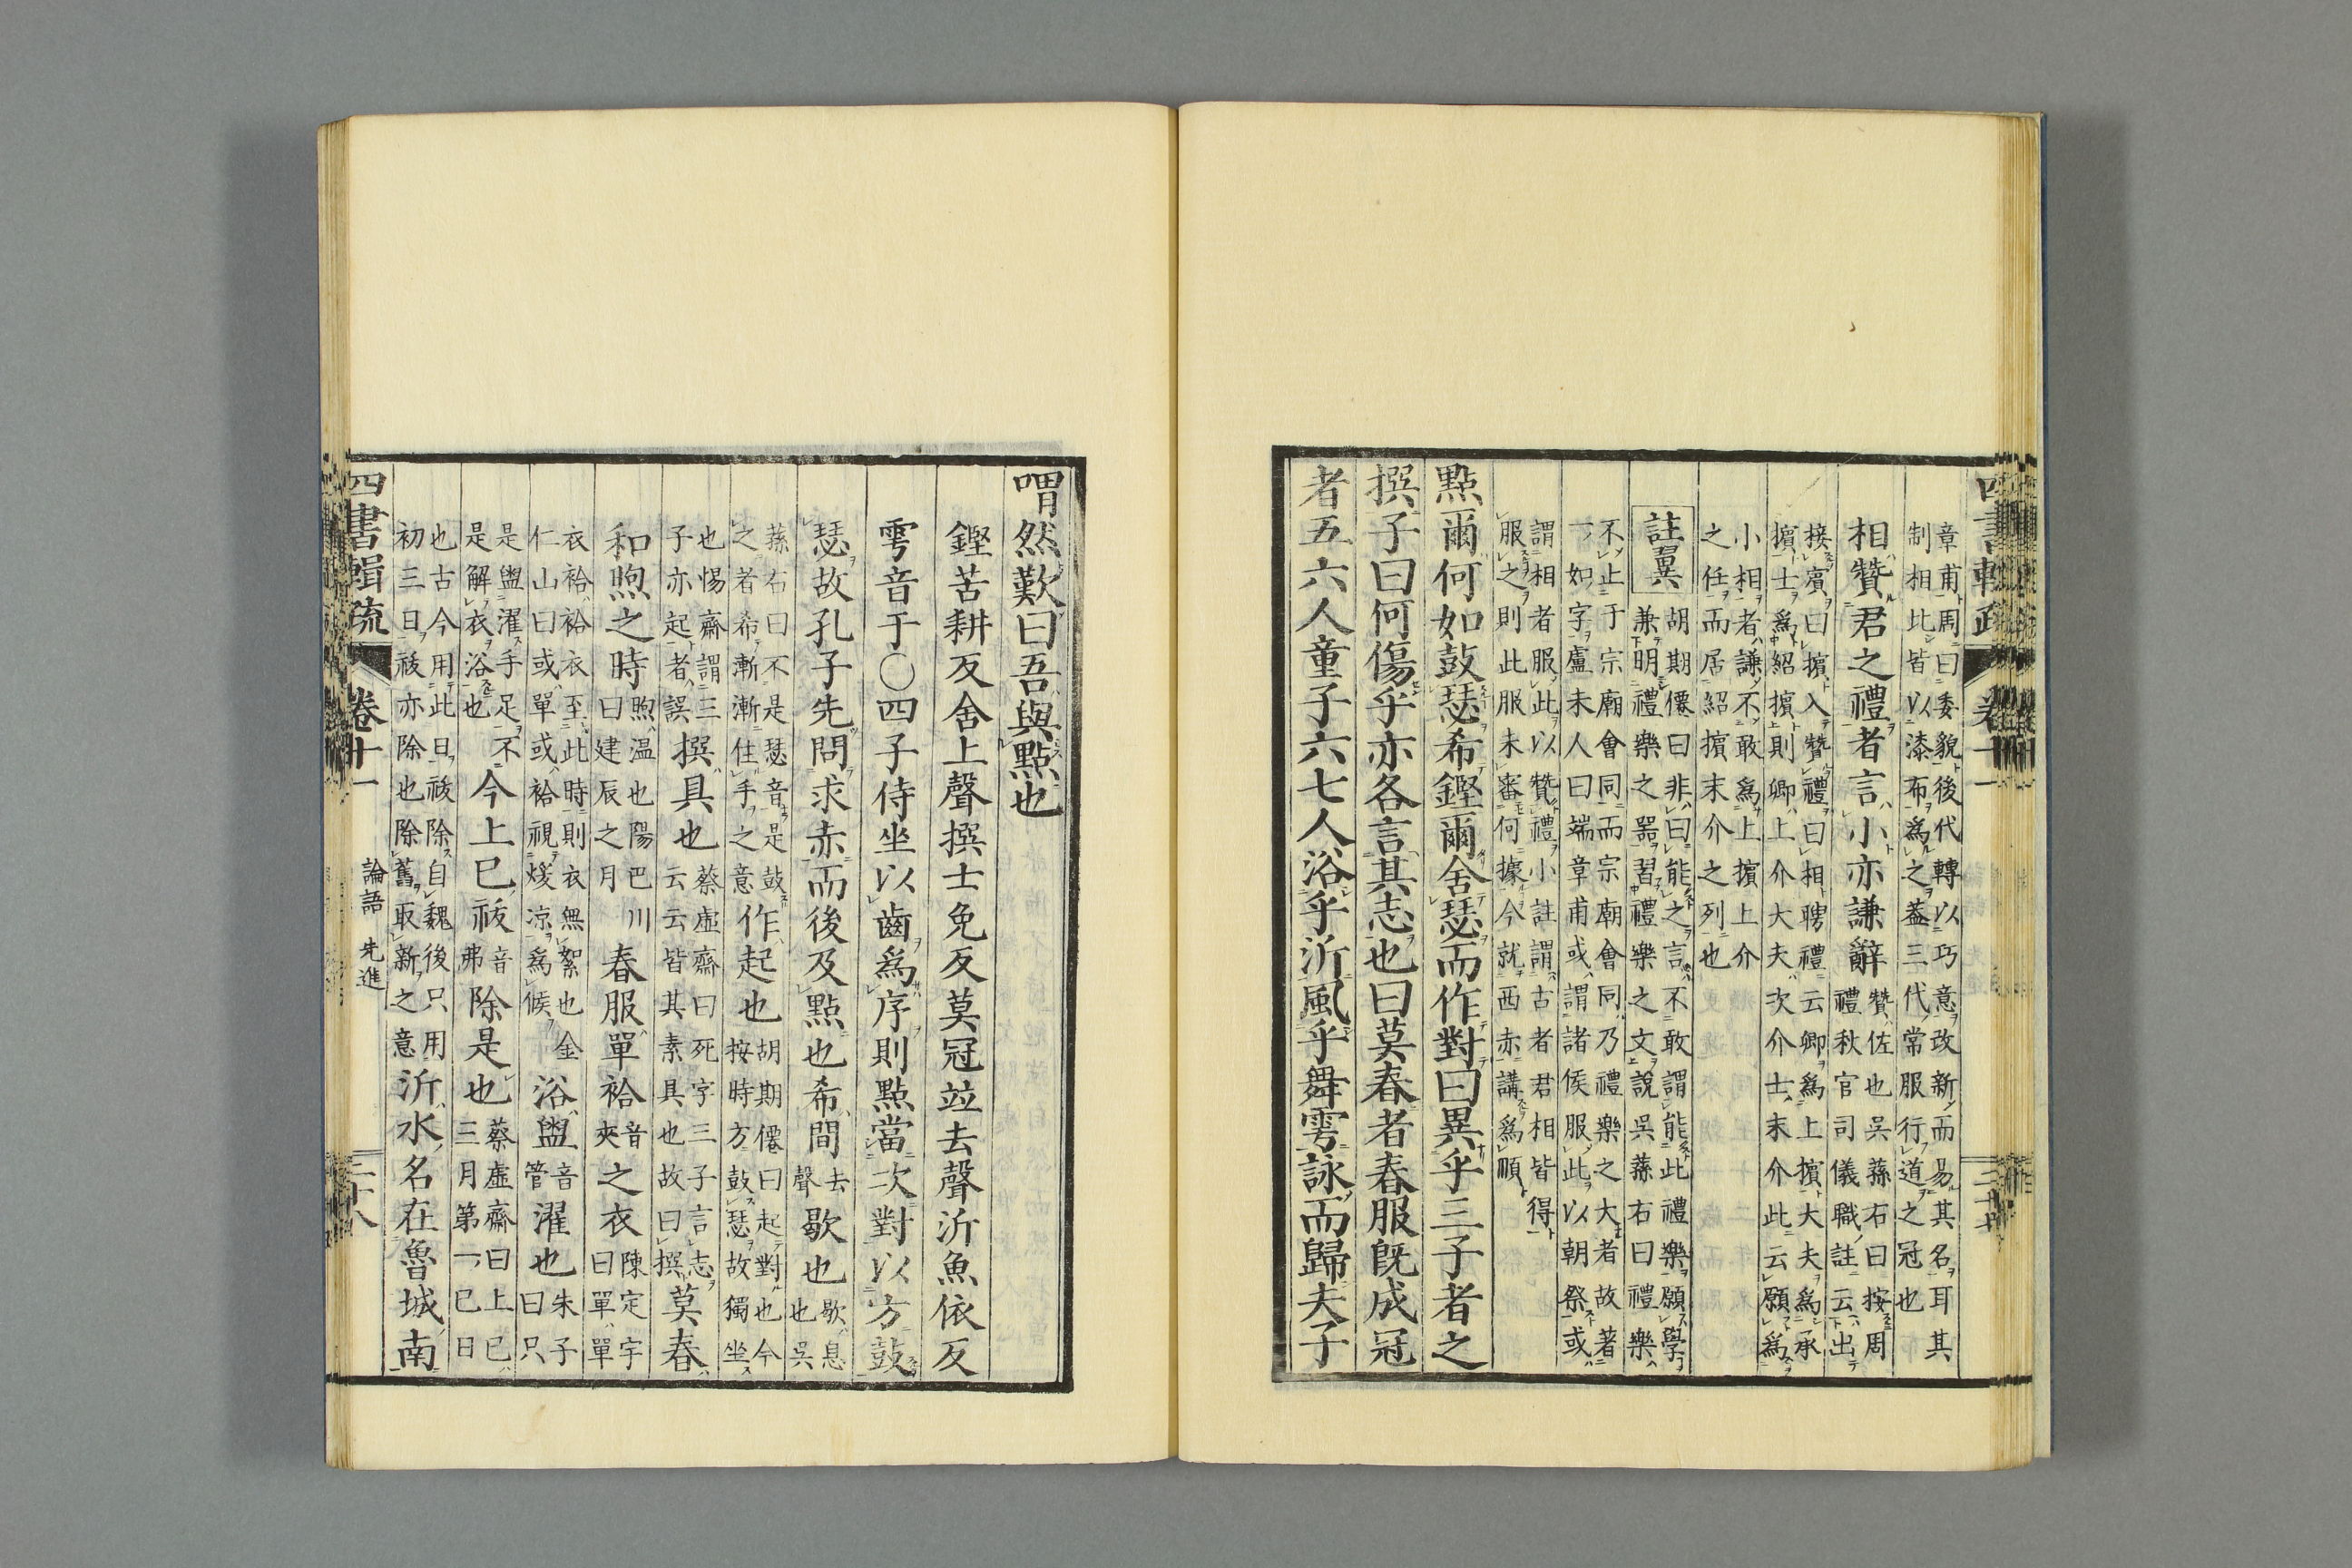 四書輯疏 卷十一 二十七
章甫周曰委貌後代轉以巧意改新而易其名耳其
制相此皆以漆布爲之蓋三代常服行道之冠也
相贊君之禮者言小亦謙辭贊佐也吳蓀右曰按周
禮秋官司儀職註云出
接賓曰擯入贊禮曰相聘禮云卿爲上擯大夫爲承
擯士爲紹擯則卿上介大夫次介士末介此云願爲
小相者謙不敢爲上擯上介
之任而居紹擯末介之列也
註翼 胡期僊曰非曰能之言不敢謂能此禮樂願學
兼明禮樂之器習禮樂之文說吳蓀右曰禮樂
不止于宗廟會同而宗廟會同乃禮樂之大者故著
一如字盧未人曰端章甫或謂諸侯服此以朝祭或
謂相者服此以贊禮小註謂古者君相皆得
服之則此服未審何據今就西赤講爲順
點爾何如鼓瑟希鏗爾舍瑟而作對曰異乎三子者之
撰子曰何傷乎亦各言其志也曰莫春者春服既成冠
者五六人童子六七人浴乎沂風乎舞雩詠而歸夫子
喟然歎曰吾與點也
鏗苦耕反舍上聲撰士免反莫冠竝去聲沂魚依反
雩音于○四子侍坐以齒爲序則點當二次對以方鼓
瑟故孔子先問求赤而後及點也希間去聲歇也歇息也吳
蓀右曰不是瑟音是鼓
之者希漸漸住手之意作起也胡期僊曰起對也今
按時方鼓瑟故獨坐
也惕齋謂三
子亦起者誤撰具也蔡虛齋曰死字三子言志
云云皆其素具也故曰撰莫春
和煦之時煦温也陽巴川
曰建辰之月春服單袷音夾之衣陳定宇曰單單
衣袷袷衣至此時則衣無絮也金
仁山曰或單或袷視煖凉爲候浴盥音管濯也朱子曰只
是盥濯手足不
是解衣浴也今上巳祓音弗除是也蔡虛齋曰上巳
三月第一巳日
也古今用此日祓除自魏後只用
初三日祓亦除也除舊取新之意沂水名在魯城南
四書輯疏 卷十一 論語 先進 二十八